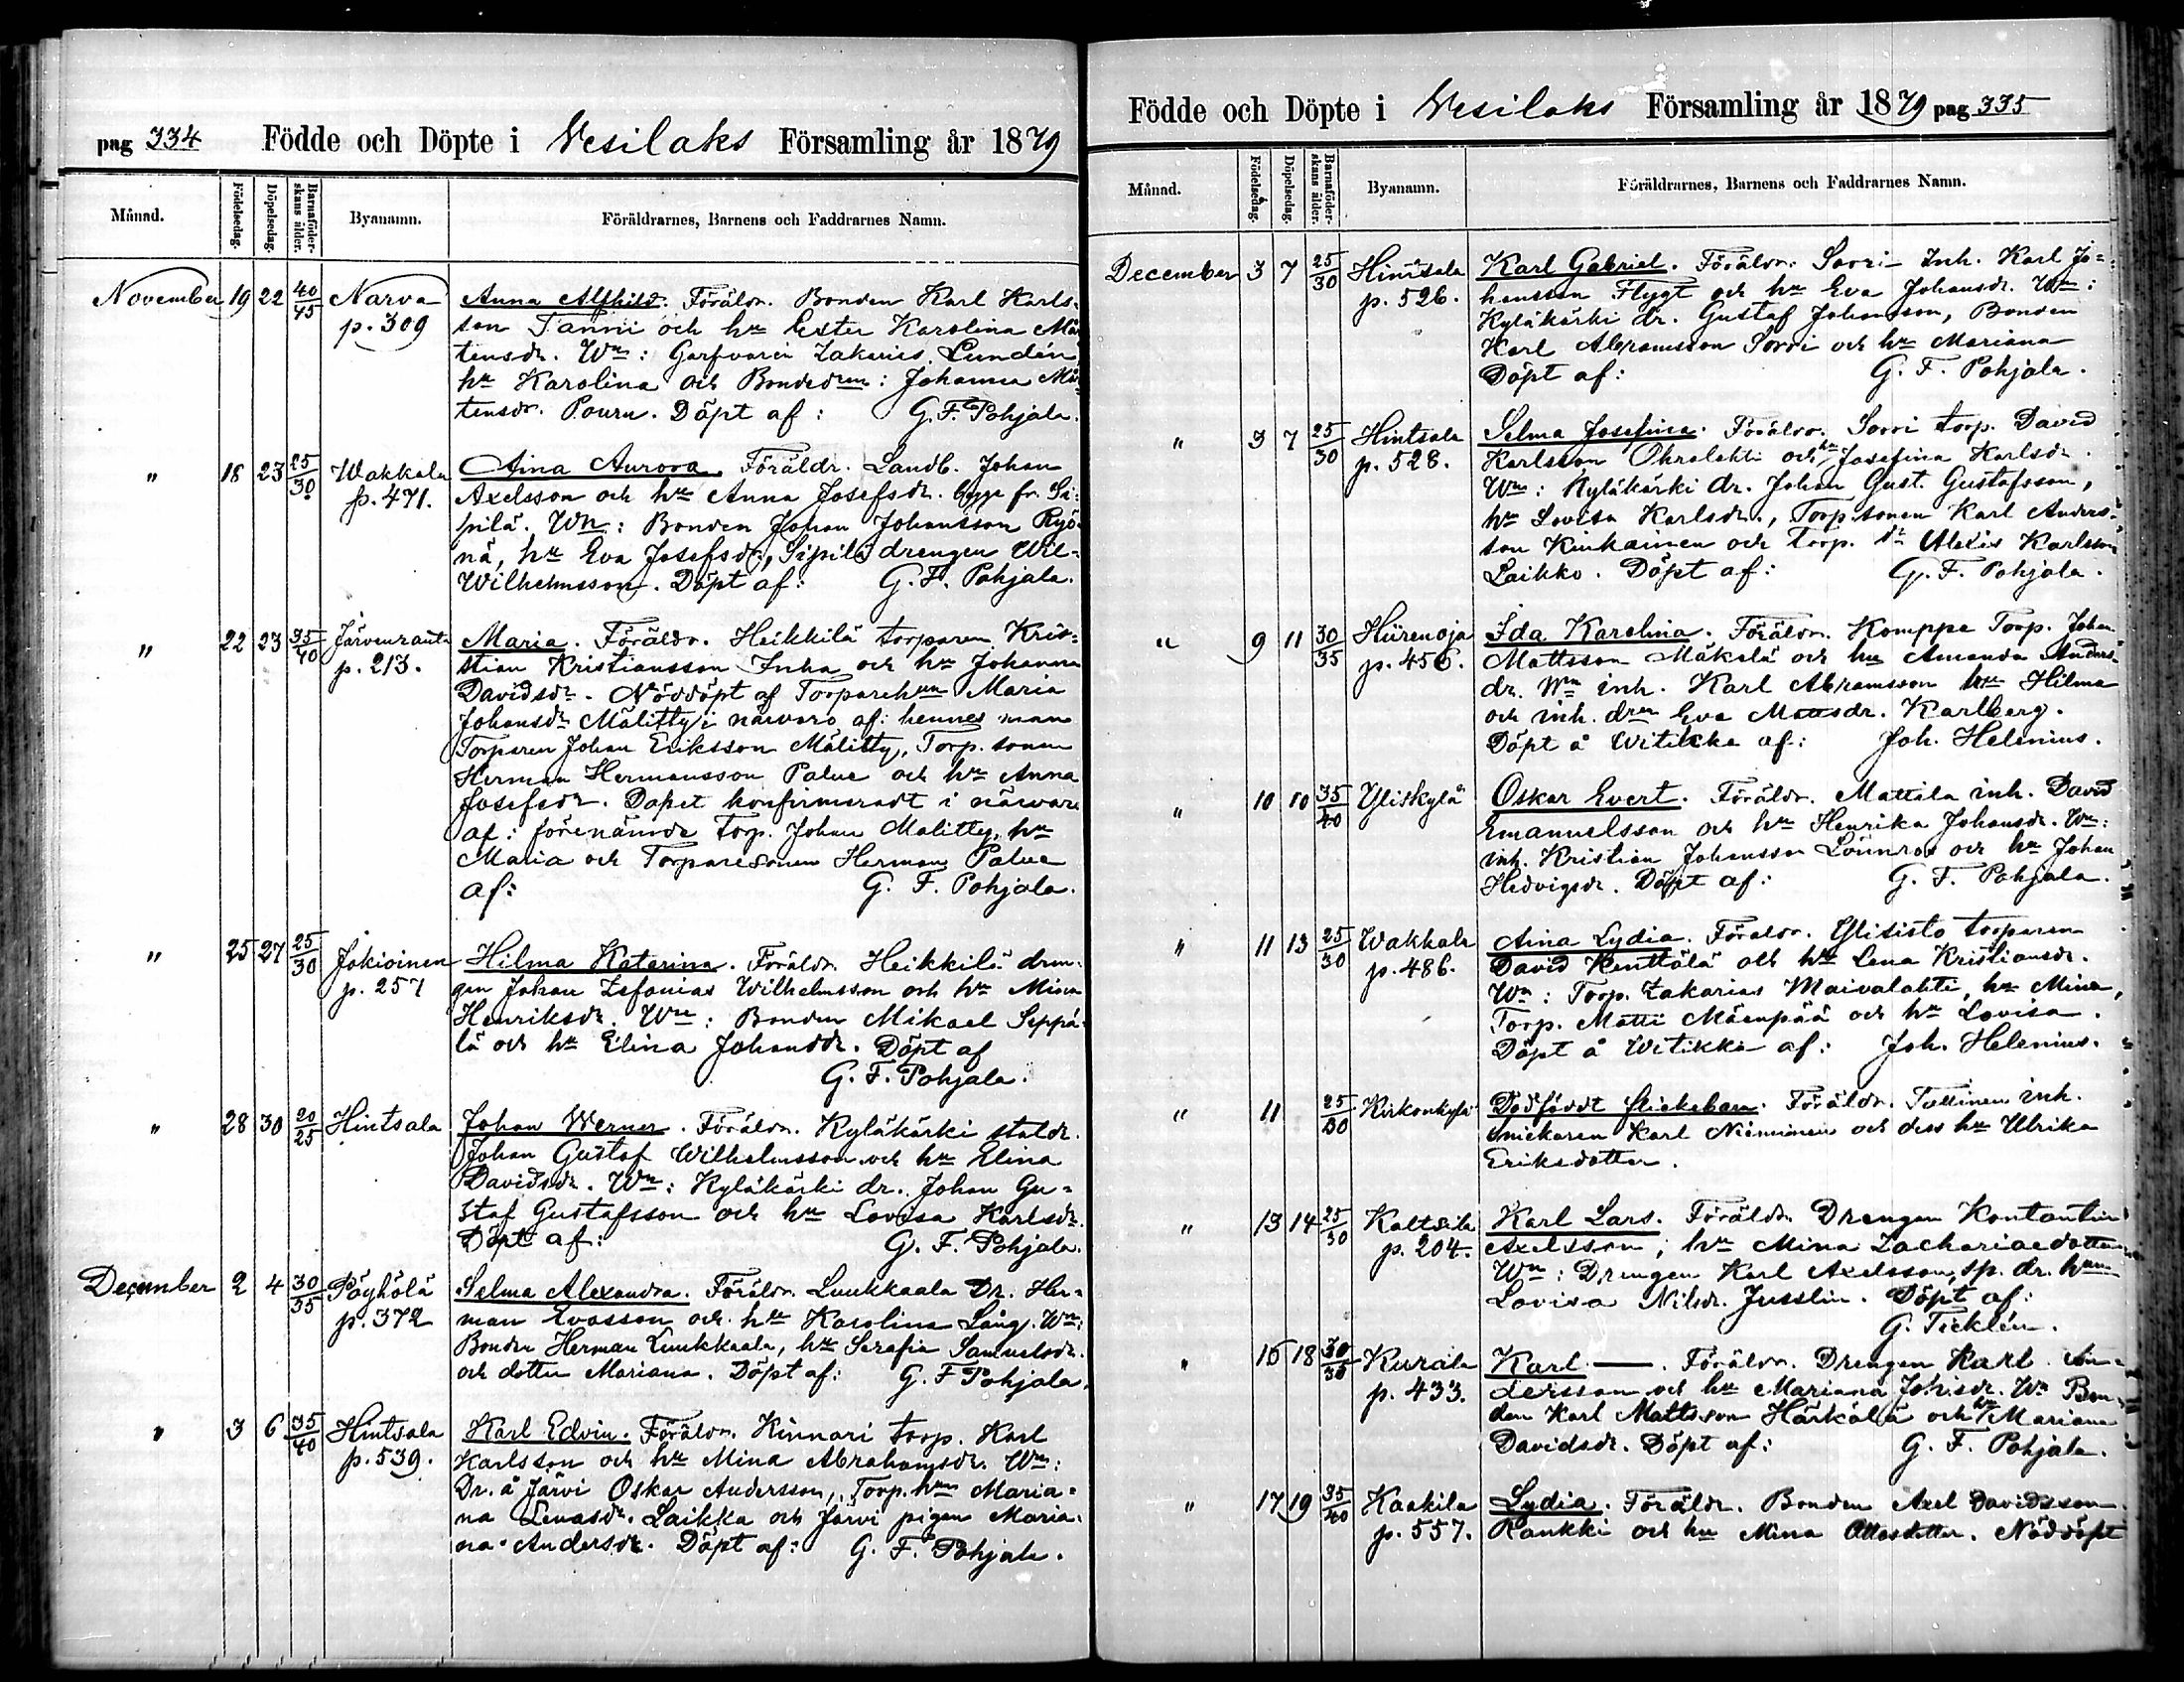 pag 334 Födde och Döpte i Vesilaks Församling år 1879
Månad. Födelsedag. Döpelsedag. Barnaföderskans ålder. Byanamn. Föräldrarnes, Barnens och Faddrarnes Namn.
November 19 22 40/45 Narva Anna Alfhild. Föräldr. Bonden Karl Karls-
p. 309 son Tanni och hu Ester Karolina Mår
tensdr. Wn: Garfvaren Zakarias Lundén
hu Karolina och Bondedrn: Johanna Mår
tensdr. Pouru. Döpt af: G. F. Pohjala.
" 18 23 25/30 Wakkala Aina Aurora. Föräldr. Landb. Johan
p. 471. Axelsson och hu Anna Josefsdr. bygge fr. Si-
pilä. Wn: Bonden Johan Johansson Ryö-
nä, hu Eva Josefsdr, Sipilä drengen Wil-
Wilhelmsson. Döpt af: G. F. Pohjala.
" 22 23 35/40 Järvenranta Maria. Föräldr. Heikkilä torparen Kris-
p. 213. stian Kristiansson Inha och hu Johanna
Davidsdr. Nöddöpt af Torparehun Maria
Johansdr Mälitty i närvaro af: hennes man
Torparen Johan Eriksson Mälitty, Torp. sonen
Herman Hermansson Palva och hu Anna
Josefsdr. Dopet konfirmeradt i närvaro
af: förenämde torp. Johan Malitty, hu
Maria och Torparesonen Herman Palva
af: G. F. Pohjala.
" 25 27 25/30 Jokioinen Hilma Katarina. Föräldr. Heikkilä dren-
p. 257 gen Johan Zefanias Wilhelmsson och hu Mina
Henriksdr. Wn: Bonden Mikael Seppä-
lä och hu Elina Johansdr. Döpt af
G. F. Pohjala.
" 28 30 20/25 Hintsala Johan Werner. Föräldr. Kyläkärki staldr.
Johan Gustaf Wilhelmsson och hu Elina
Davidsdr. Wn: Kyläkärki dr. Johan Gu-
staf Gustafsson och hu Lovisa Karlsdr.
Döpt af: G. F. Pohjala.
December 2 4 30/35 Pöyhölä Selma Alexandra. Föräldr. Luukkaala Dr. Her-
p. 372 man Evasson och hu Karolina Lång. Wn:
Bonden Herman Luukkaala, hu Serafia Samuelsdr.
och dotter Mariana. Döpt af: G. F. Pohjala.
" 3 6 35/40 Hintsala Karl Edvin. Föräldr. Kinnari torp. Karl
p. 539. Karlsson och hu Mina Abrahamsdr. Wn:
Dr. å Järvi Oskar Andersson, Torp. hun Maria-
na Lenasdr. Laikka och Järvi pigan Maria-
na Andersdr. Döpt af: G. F. Pohjala.
Födde och Döpte i Vesilaks Församling år 1879 pag 335
Månad. Födelsedag. Döpelsedag. Barnaföderskans ålder. Byanamn. Föräldrarnes, Barnens och Faddrarnes Namn.
December 3 7 25/30 Hintsala Karl Gabriel. Föräldr. Sorri Inh. Karl Jo-
p. 526. hansson Flygt och hu Eva Johansdr. Wn:
Kyläkärki dr. Gustaf Johansson, Bonden
Karl Abramsson Sorri och hu Mariana
Döpt af: G. F. Pohjala.
" 3 7 25/30 Hintsala Selma Josefina. Föräldr. Sorri torp. David
p. 528. Karlsson Ohralahti och hu Josefina Karlsdr.
Wn: Kyläkärki dr. Johan Gust. Gustafsson,
hu Lovisa Karlsdr., Torp.sonen Karl Anders-
son Kinkainen och torp. Alexis Karlsson
Laikko. Döpt af: G. F. Pohjala.
" 9 11 30/35 Hiirenoja Ida Karolina. Föräldr. Komppa Torp. Johan
p. 456. Mattsson Mäkelä och hu Amanda Anders-
dr. Wn inh. Karl Abramsson hu Hilma
och inh. drn Eva Mattsdr. Karlberg.
Döpt å Witikka af: Joh. Helenius.
" 10 10 35/40 Yliskylä Oskar Evert. Föräldr. Mattala inh. David
Emanuelsson och hu Henrika Johansdr. Wn:
inh. Kristian Johansson Lönnros och hu Johan
Hedvigsdr. Döpt af: G. F. Pohjala.
" 11 13 25/30 Wakkala Aina Lydia. Föräldr. Ylisisto torparen
p. 486. David Kenttälä och hu Lena Kristiansdr.
Wn: Torp. Zakarias Maivalahti, hu Mina,
Torp. Matti Mäenpää och hu Lovisa.
Döpt å Witikka af: Joh. Helenius.
" 11 25/30 Kirkonkylä Dödfödt flickebarn. Föräldr. Tallinen inh.
snickaren Karl Nieminen och dess hu Ulrika
Eriksdotter.
" 13 14 25/30 Kaltsila Karl Lars. Föräldr. Drengen Konstantin
p. 204. Axelsson, hu Mina Zachariaedotter
Wn: Drengen Karl Axelsson, sp. dr. hun
Lovisa Nilsdr. Jusslin. Döpt af:
G. Ticklén.
" 16 18 30/35 Kurala Karl —. Föräldr. Drengen Karl An-
p. 433. dersson och hu Mariana Johisdr. Wn Bon-
den Karl Mattsson Härkälä och hu Mariana
Davidsdr. Döpt af: G. F. Pohjala.
" 17 19 35/40 Kaakila Lydia. Föräldr. Bonden Axel Davidsson
p. 557. Rankki och hu Mina Ottosdotter. Nöddöpt